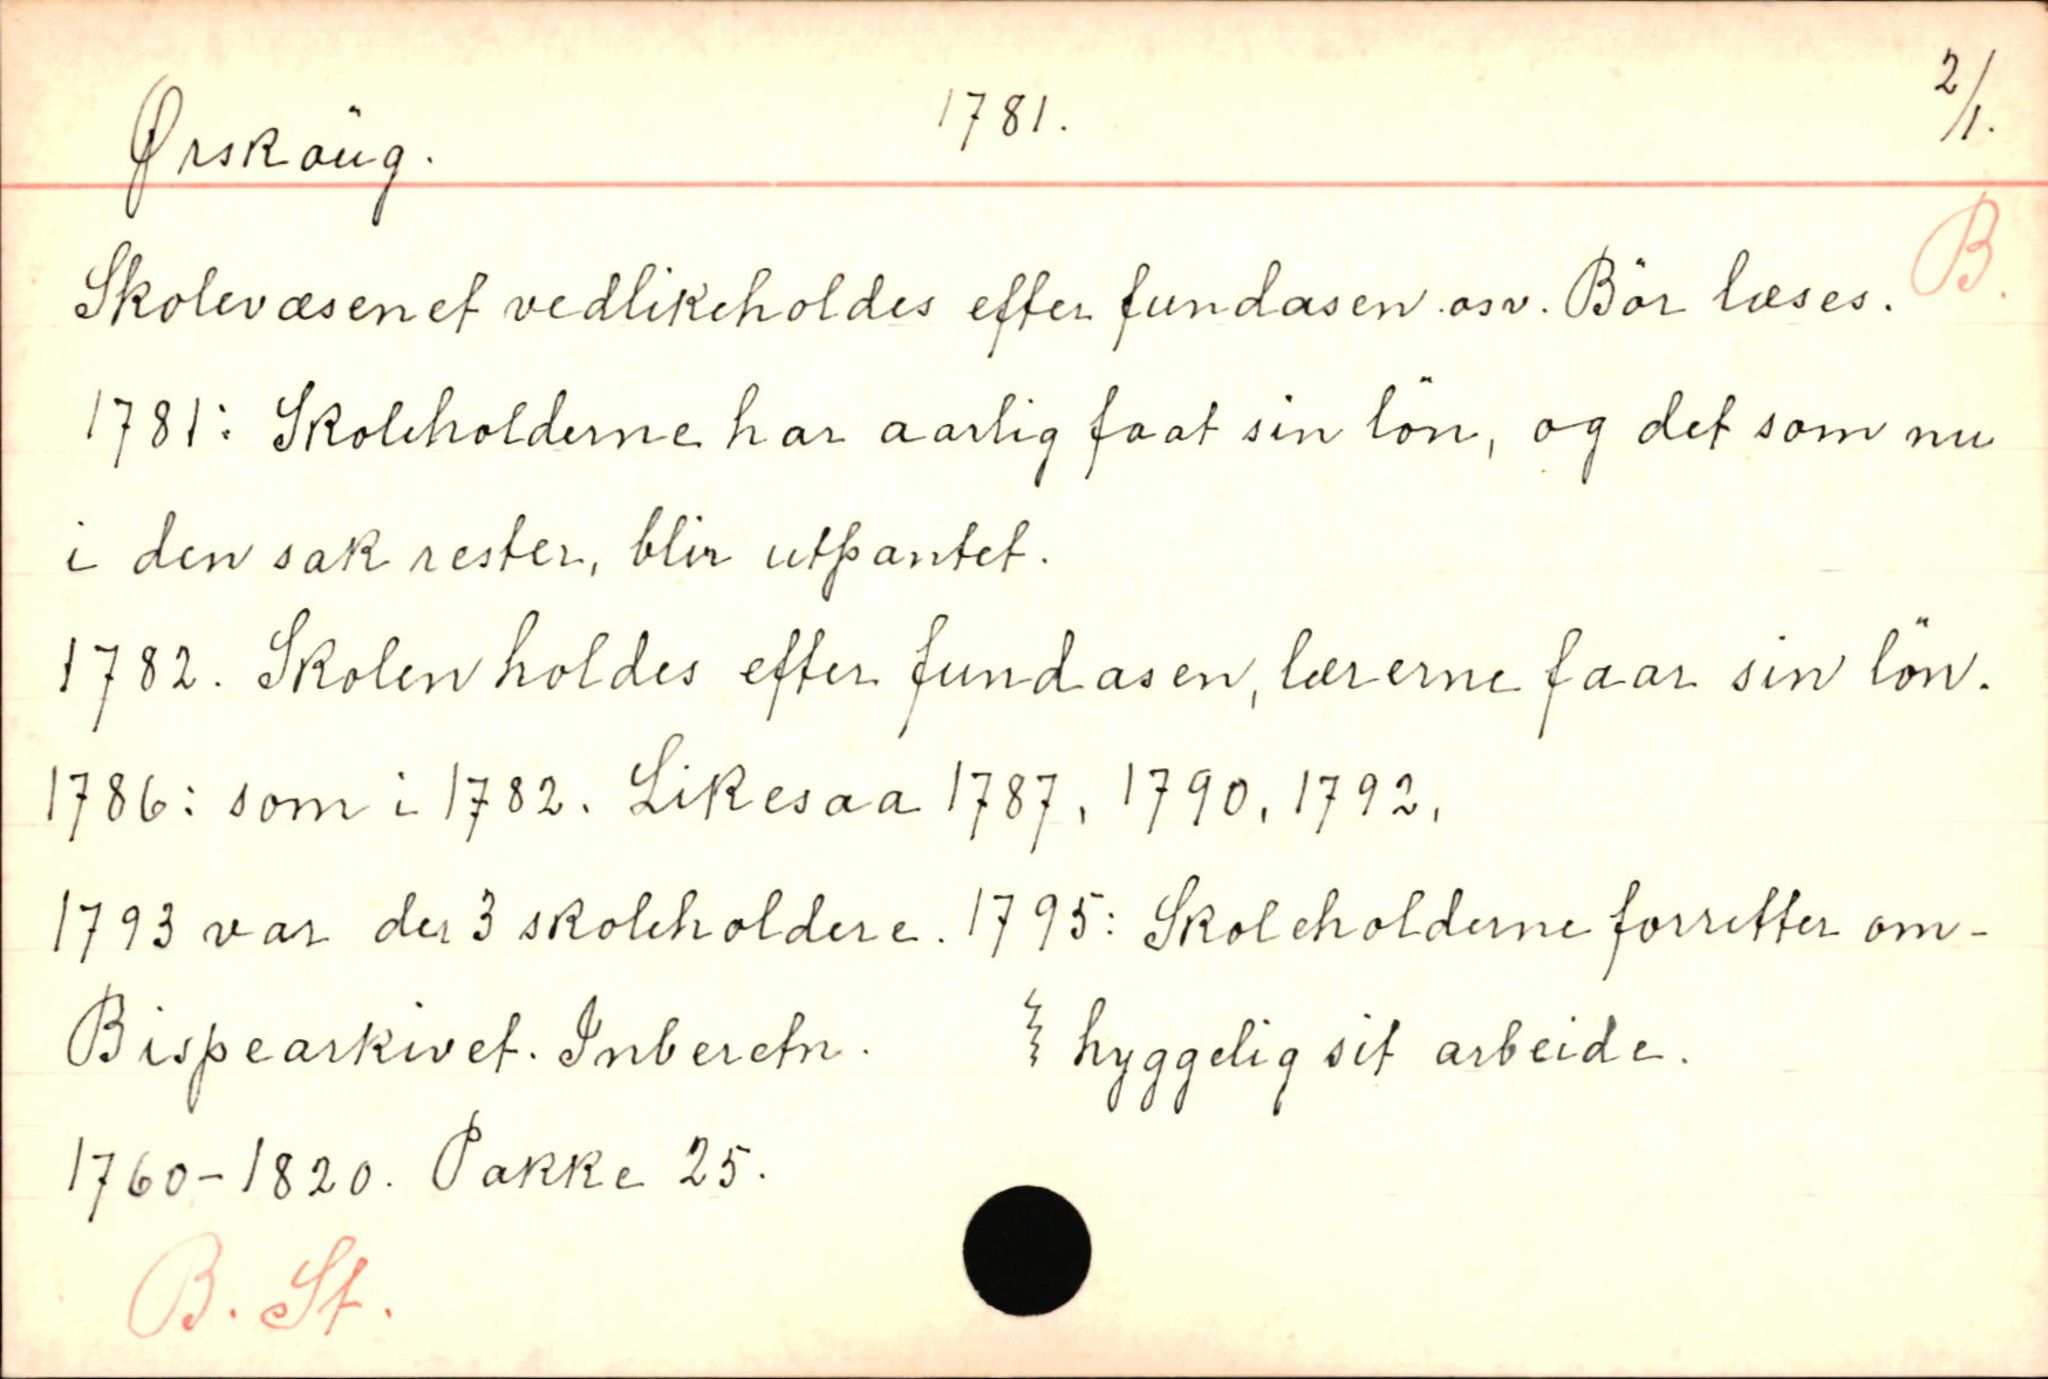 Ørsköug. 1781. 2/1.
B.
Skolevæsenet vedlikeholdes efter fundasen osv. Bör læses.
1781: Skoleholderne har aarlig faat sin lön, og det som nu
i den sak rester, blir utpantet.
1782. Skolen holdes efter fundasen, lærerne faar sin lön.
1786: som i 1782. Likesaa 1787, 1790, 1792,
1793 var der 3 skoleholdere. 1795: Skoleholderne forretter om-
Bispearkivet. Inberetn. hyggelig sit arbeide.
1760-1820. Pakke 25.
B. St.